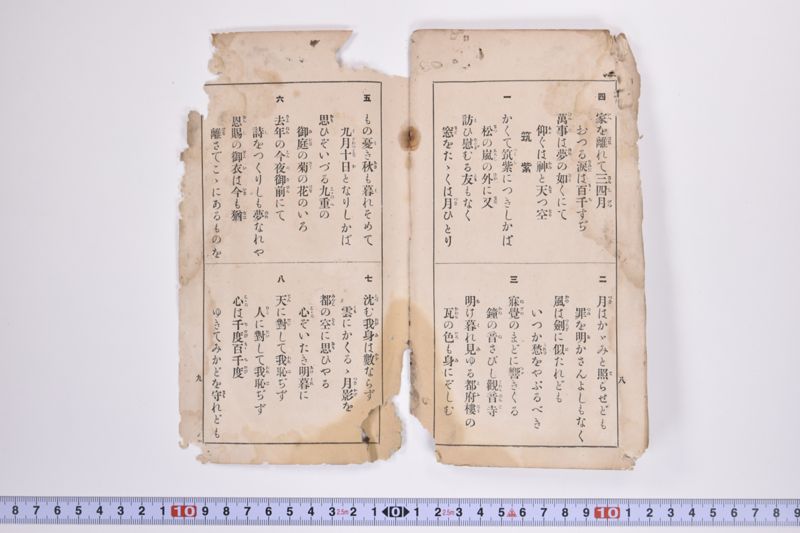 四
家を離れて三四月
おつる涙は百千すぢ
萬事は夢の如くにて
仰ぐは神と天つ空
筑紫
一
かくて筑紫につきしかば
松の嵐の外に又
訪ひ慰むる友もなく
窓をたゝくは月ひとり
二
月はかゞみと照らせども
罪を明かさんよしもなく
風は劍に似たれども
いつか愁をやぶるべき
三
寐覺のまどに響きくる
鐘の音さびし觀音寺
明け暮れ見ゆる都府樓の
瓦の色も身にぞしむ
八
五
もの憂き秋も暮れそめて
九月十日となりしかば
思ひぞいづる九重の
御庭の菊の花のいろ
六
去年の今夜御前にて
詩をつくりしも夢なれや
恩賜の御衣は今も猶
離さでこゝにあるものを
七
沈む我身は數ならず
雲にかくるゝ月影を
都の空に思ひやる
心ぞいたき明暮に
八
天に對して我恥ぢず
人に對して我恥ぢず
心は千度百千度
ゆきてみかどを守れども
九
8 7 6 5 4 3 2 1 10 9 8 7 6 5 4 3 2.5m 2 1 0 1 2 2.5m 3 4 5 6 7 8 9 10 1 2 3 4 5 6 7 8 9